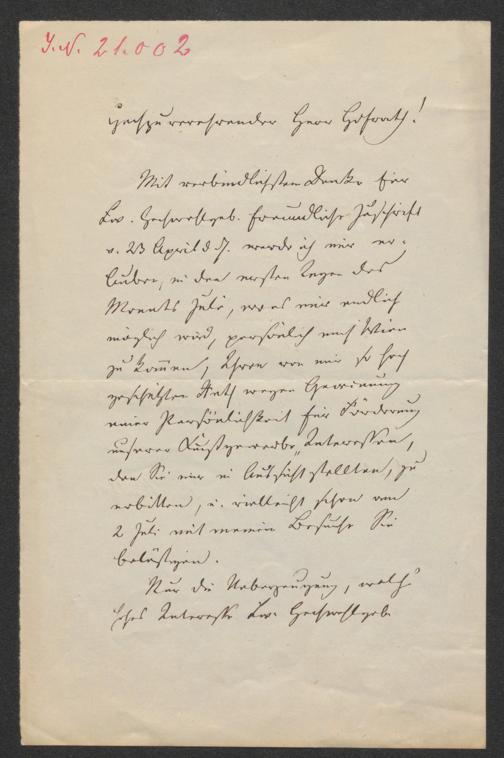 J.N. 21.002
Hochzuverehrender Herr Hofrath!
Mit verbindlichstem Danke für
Ew. Hochwohlgeb. freundliche Zuschrift
v. 23 April d. J. werde ich mir er-
lauben, in den ersten Tagen des
Monats Juli, wo es mir endlich
möglich wird, persönlich nach Wien
zu kommen, Ihren von mir so hoch
geschätzten Rath wegen Gewinnung
einer Persönlichkeit für Förderung
unserer Kunstgewerbe-Interessen,
den Sie mir in Aussicht stellten, zu
erbitten, u. vielleicht schon am
2 Juli mit meinem Besuche Sie
belästigen.
Nur die Ueberzeugung, welch'
hohes Interesse Ew. Hochwohlgeb.